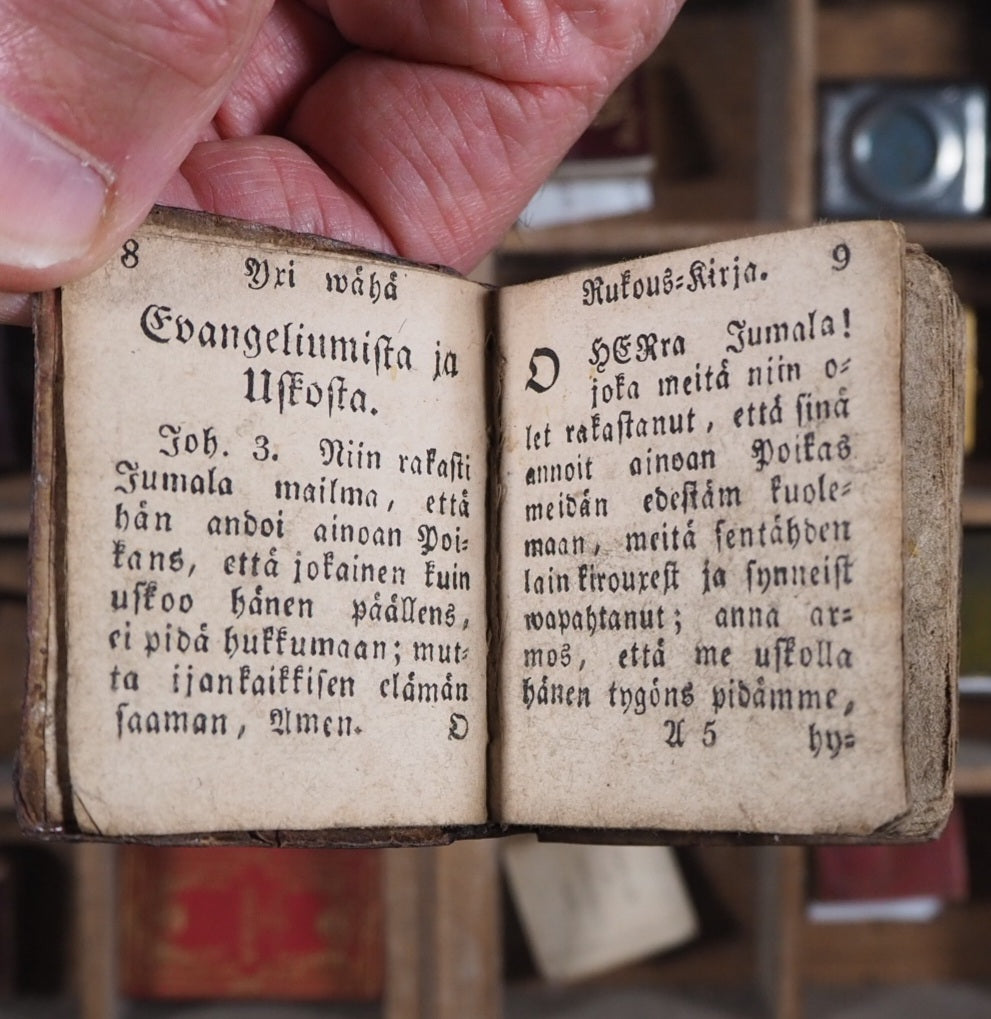 8
Yxi wähä
Evangeliumista ja
Uskosta.
Joh. 3. Niin rakasti
Jumala mailma, että
hän andoi ainoan Poi-
kans, että jokainen kuin
uskoo hänen päällens,
ei pidä hukkumaan; mut-
ta ijankaikkisen elämän
saaman, Amen.
O
Rukous-Kirja.
9
O HERra Jumala!
joka meitä niin o-
let rakastanut, että sinä
annoit ainoan Poikas
meidän edestäm kuole-
maan, meitä sentähden
lain kirouxest ja synneist
wapahtanut; anna ar-
mos, että me uskolla
hänen tygöns pidämme,
A 5
hy-